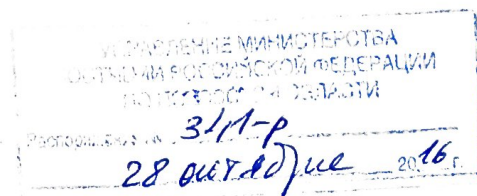 УПРАВЛЕНИЕ МИНИСТЕРСТВА
ЮСТИЦИИ РОССИЙСКОЙ ФЕДЕРАЦИИ
ПО ОБЛАСТИ
Распоряжение №
28 октября 2016 г.